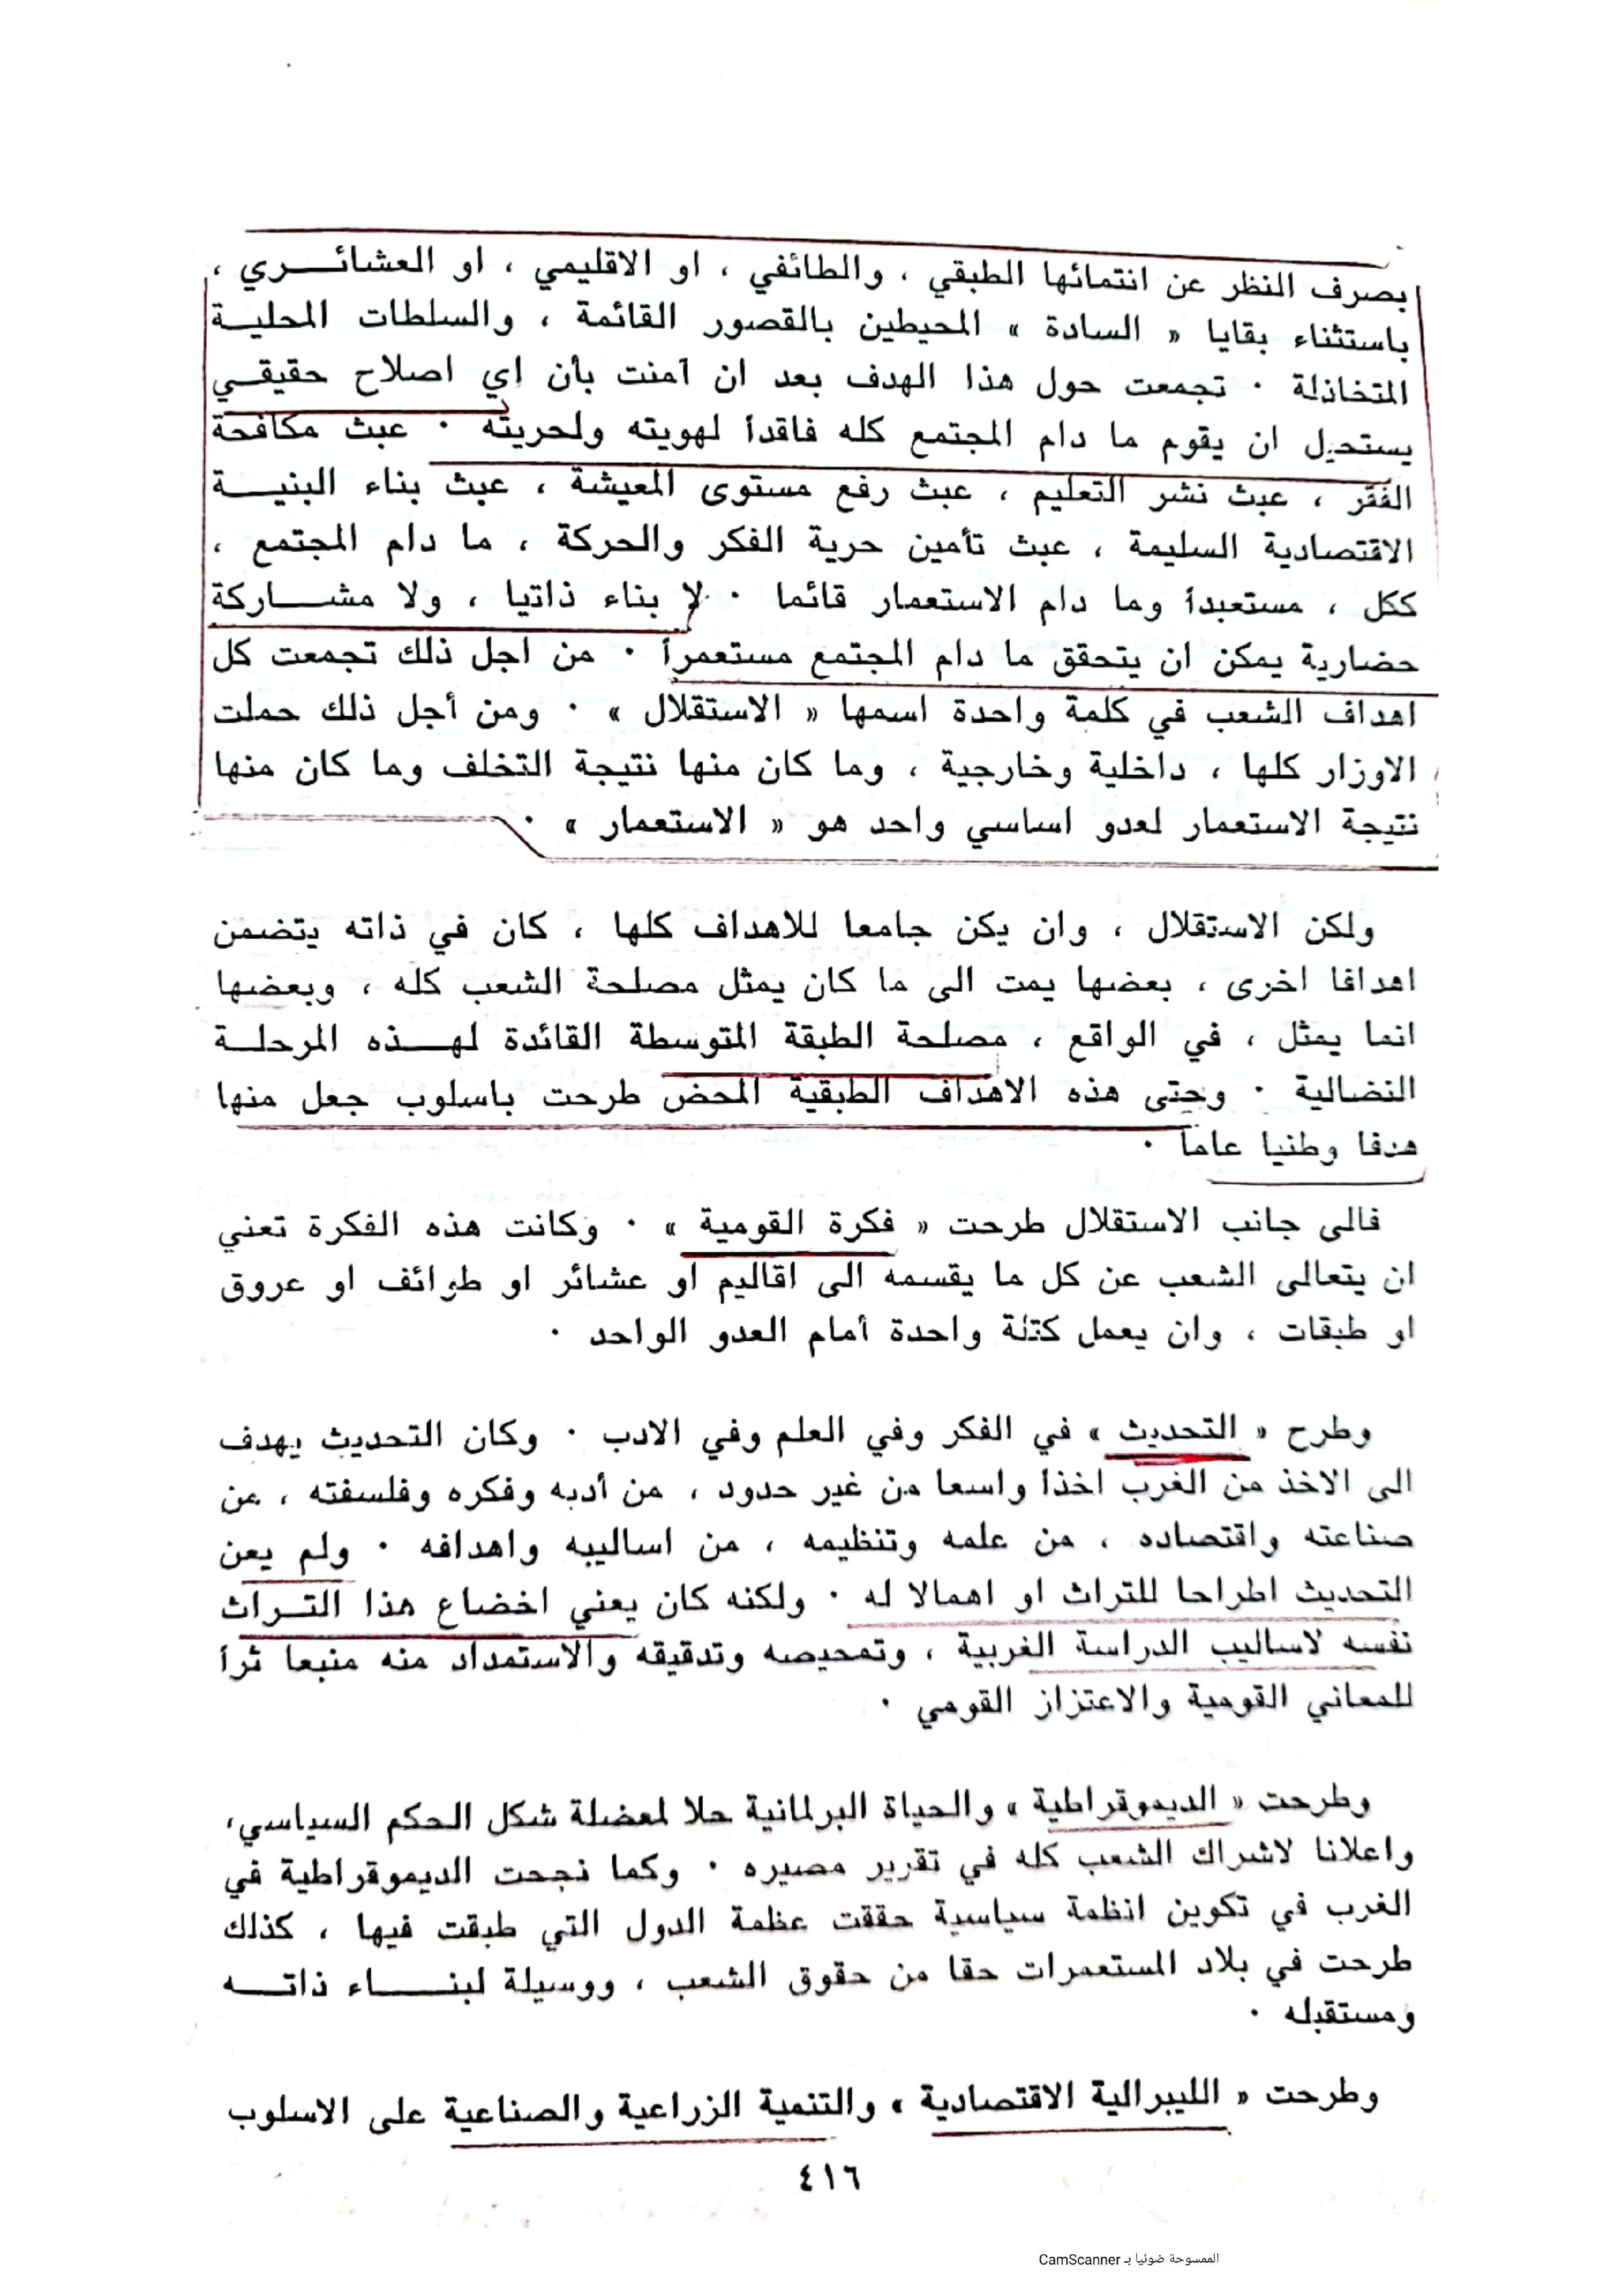 بصرف النظر عن انتمائها الطبقي ، والطائفي ، او الاقليمي ، او العشائــري ،
باستثناء بقايا « السادة » المحيطين بالقصور القائمة ، والسلطات المحليــة
المتخاذلة ٠ تجمعت حول هذا الهدف بعد ان آمنت بأن اي اصلاح حقيقــي
يستحيل ان يقوم ما دام المجتمع كله فاقدأ لهويته ولحريته ٠ عبث مكافحة
الفقر ، عبث نشر التعليم ، عبث رفع مستوى المعيشة ، عبث بناء البنيــة
الاقتصادية السليمة ، عبث تأمين حرية الفكر والحركة ، ما دام المجتمع ،
ككل ، مستعبدأ وما دام الاستعمار قائما ٠ لا بناء ذاتيا ، ولا مشــاركة
حضارية يمكن ان يتحقق ما دام المجتمع مستعمرأ ٠ من اجل ذلك تجمعت كل
اهداف الشعب في كلمة واحدة اسمها « الاستقلال » ٠ ومن أجل ذلك حملت
الاوزار كلها ، داخلية وخارجية ، وما كان منها نتيجة التخلف وما كان منها
نتيجة الاستعمار لعدو اساسي واحد هو « الاستعمار » ٠
ولكن الاستقلال ، وان يكن جامعا للاهداف كلها ، كان في ذاته يتضمن
اهدافا اخرى ، بعضها يمت الى ما كان يمثل مصلحة الشعب كله ، وبعضها
انما يمثل ، في الواقع ، مصلحة الطبقة المتوسطة القائدة لهــذه المرحلــة
النضالية ٠ وحتى هذه الاهداف الطبقية المحض طرحت باسلوب جعل منها
هدفا وطنيا عاما ٠
فالى جانب الاستقلال طرحت « فكرة القومية » ٠ وكانت هذه الفكرة تعني
ان يتعالى الشعب عن كل ما يقسمه الى اقاليم او عشائر او طوائف او عروق
او طبقات ، وان يعمل كتلة واحدة أمام العدو الواحد ٠
وطرح « التحديث » في الفكر وفي العلم وفي الادب ٠ وكان التحديث يهدف
الى الاخذ من الغرب اخذا واسعا من غير حدود ، من أدبه وفكره وفلسفته ، من
صناعته واقتصاده ، من علمه وتنظيمه ، من اساليبه واهدافه ٠ ولم يعن
التحديث اطراحا للتراث او اهمالا له ٠ ولكنه كان يعني اخضاع هذا التــراث
نفسه لاساليب الدراسة الغربية ، وتمحيصه وتدقيقه والاستمداد منه منبعا ثرأ
للمعاني القومية والاعتزاز القومي ٠
وطرحت « الديموقراطية » والحياة البرلمانية حلا لمعضلة شكل الحكم السياسي،
واعلانا لاشراك الشعب كله في تقرير مصيره ٠ وكما نجحت الديموقراطية في
الغرب في تكوين انظمة سياسية حققت عظمة الدول التي طبقت فيها ، كذلك
طرحت في بلاد المستعمرات حقا من حقوق الشعب ، ووسيلة لبنــاء ذاتــه
ومستقبله ٠
وطرحت « الليبرالية الاقتصادية » والتنمية الزراعية والصناعية على الاسلوب
٤١٦
الممسوحة ضوئيا بـ CamScanner